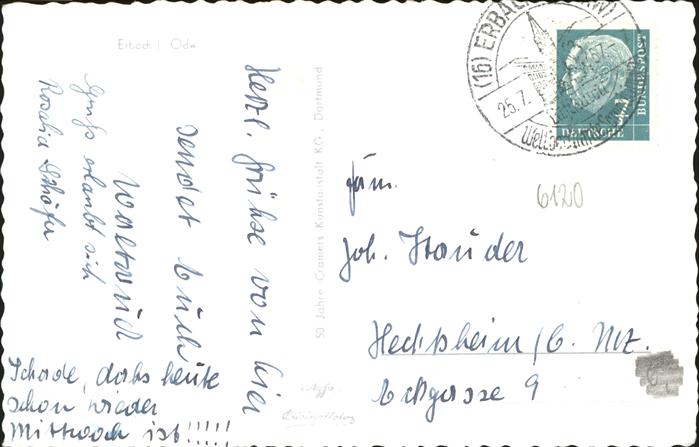 Erbach i. Odw.
Herzl. Grüße von hier
sendet Euch
Waltraud
Gruß erlaubt sich
Rosalia Schäfer
Schade, dahs heute
schon wieder
Mittwoch ist!!!!!
50 Jahre Cramers Kunstanstalt KG., Dortmund
(16) ERBACH
25.7. 57-
DEUTSCHE
BUNDESPOST
6120
Fam.
Joh. Stauder
Hechtsheim/b. Mz.
Eckgasse 9